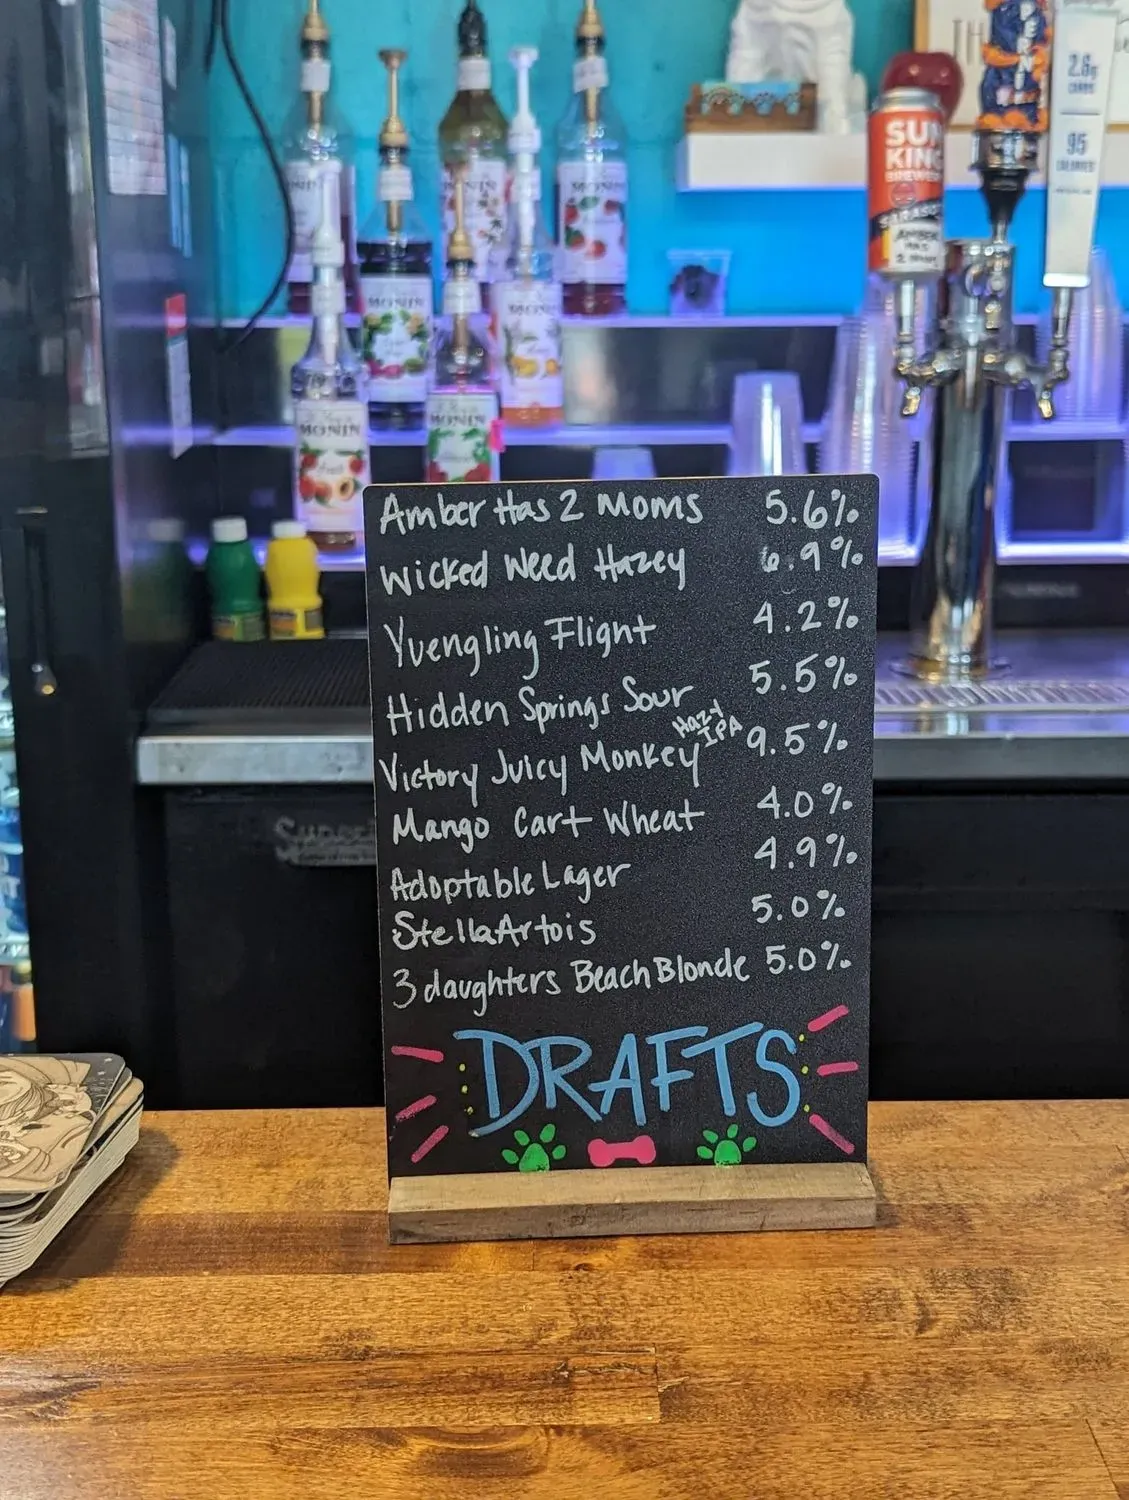 THE
PERNI
2.6g
CARBS
95
CALORIES
SUN
KING
BREWERY
SARASOTA
AMBER
HAS
2 MOMS
MONIN
MONIN
MONIN
MONIN
MONIN
MONIN
MONIN
Amber Has 2 Moms 5.6%
Wicked Weed Hazey 6.9%
Yuengling Flight 4.2%
Hidden Springs Sour 5.5%
Victory Juicy Monkey Hazy IPA 9.5%
Mango Cart Wheat 4.0%
Adoptable Lager 4.9%
Stella Artois 5.0%
3 daughters Beach Blonde 5.0%
DRAFTS